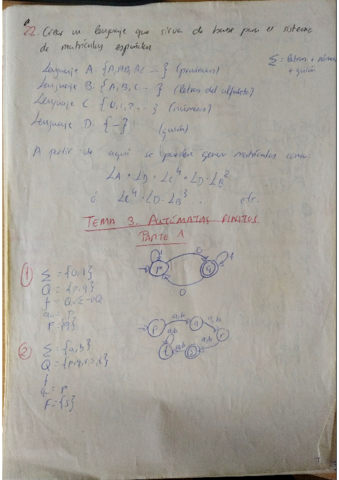 22. Crear un lenguaje que sirva de base para el sistema
de matrículas españolas
Σ = letras + números
+ guión
Lenguaje A {A, AB, AC ...} (provincias)
Lenguaje B {A, B, C ...} (letras del alfabeto)
Lenguaje C {0, 1, 2, ...} (números)
Lenguaje D {-} (guión)
A partir de aquí se pueden generar matrículas como
L_A · L_D · L_C^4 · L_D · L_B^2
ó L_C^4 · L_D · L_B^3 , etc.
TEMA 3. AUTÓMATAS FINITOS
PARTE 1
① Σ = {0,1}
Q = {p, q}
f = QxΣ → Q
q₀ = p
F = {q}
p
q
0
0
1
② Σ = {a,b}
Q =
f
q₀ = p
F = {s}
p
q
r
s
t
a,b
a,b
a,b
a,b
a,b